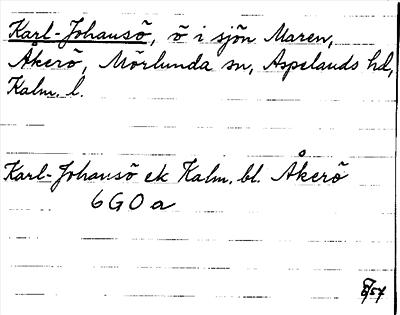 Karl-Johansö, ö i sjön Maren,
Åkerö, Mörlunda sn, Aspelands hd,
Kalm. l.
Karl-Johansö ek Kalm. bl. Åkerö
6G0a